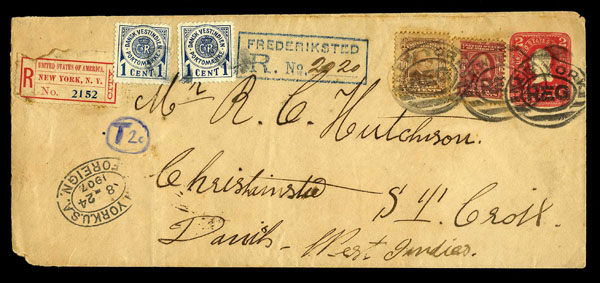 DANSK-VESTINDIEN
PORTOMÆRKE
1 CENT 1
DANSK-VESTINDIEN
PORTOMÆRKE
1 CENT 1
FREDERIKSTED
R. No. 2020
2 2
R
UNITED STATES OF AMERICA.
NEW YORK, N. Y.
No. 2152
REG
Mr R. C. Hutchison.
T 2c
Christiansted
St. Croix.
Danish West Indies.
YORK U.S.A.
8-24
1907
FOREIGN.